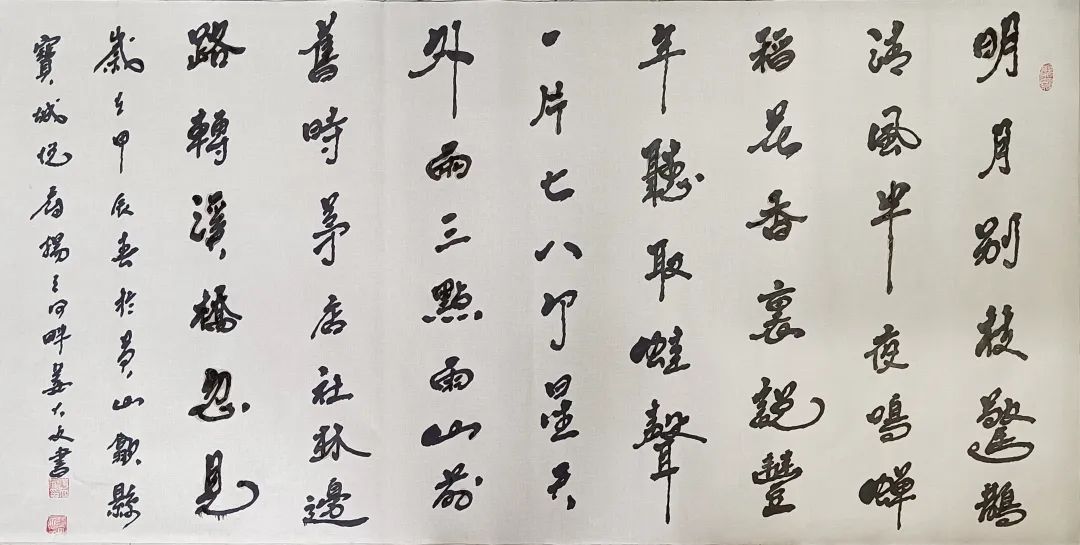 明月别枝驚鵲
清風半夜鳴蟬
稻花香裏説豐
年聽取蛙聲
一片七八个星天
外兩三點雨山前
舊時茅店社林邊
路轉溪橋忽見
歲在甲辰春於黄山歙縣
寶城悦府揚之河畔姜大文書